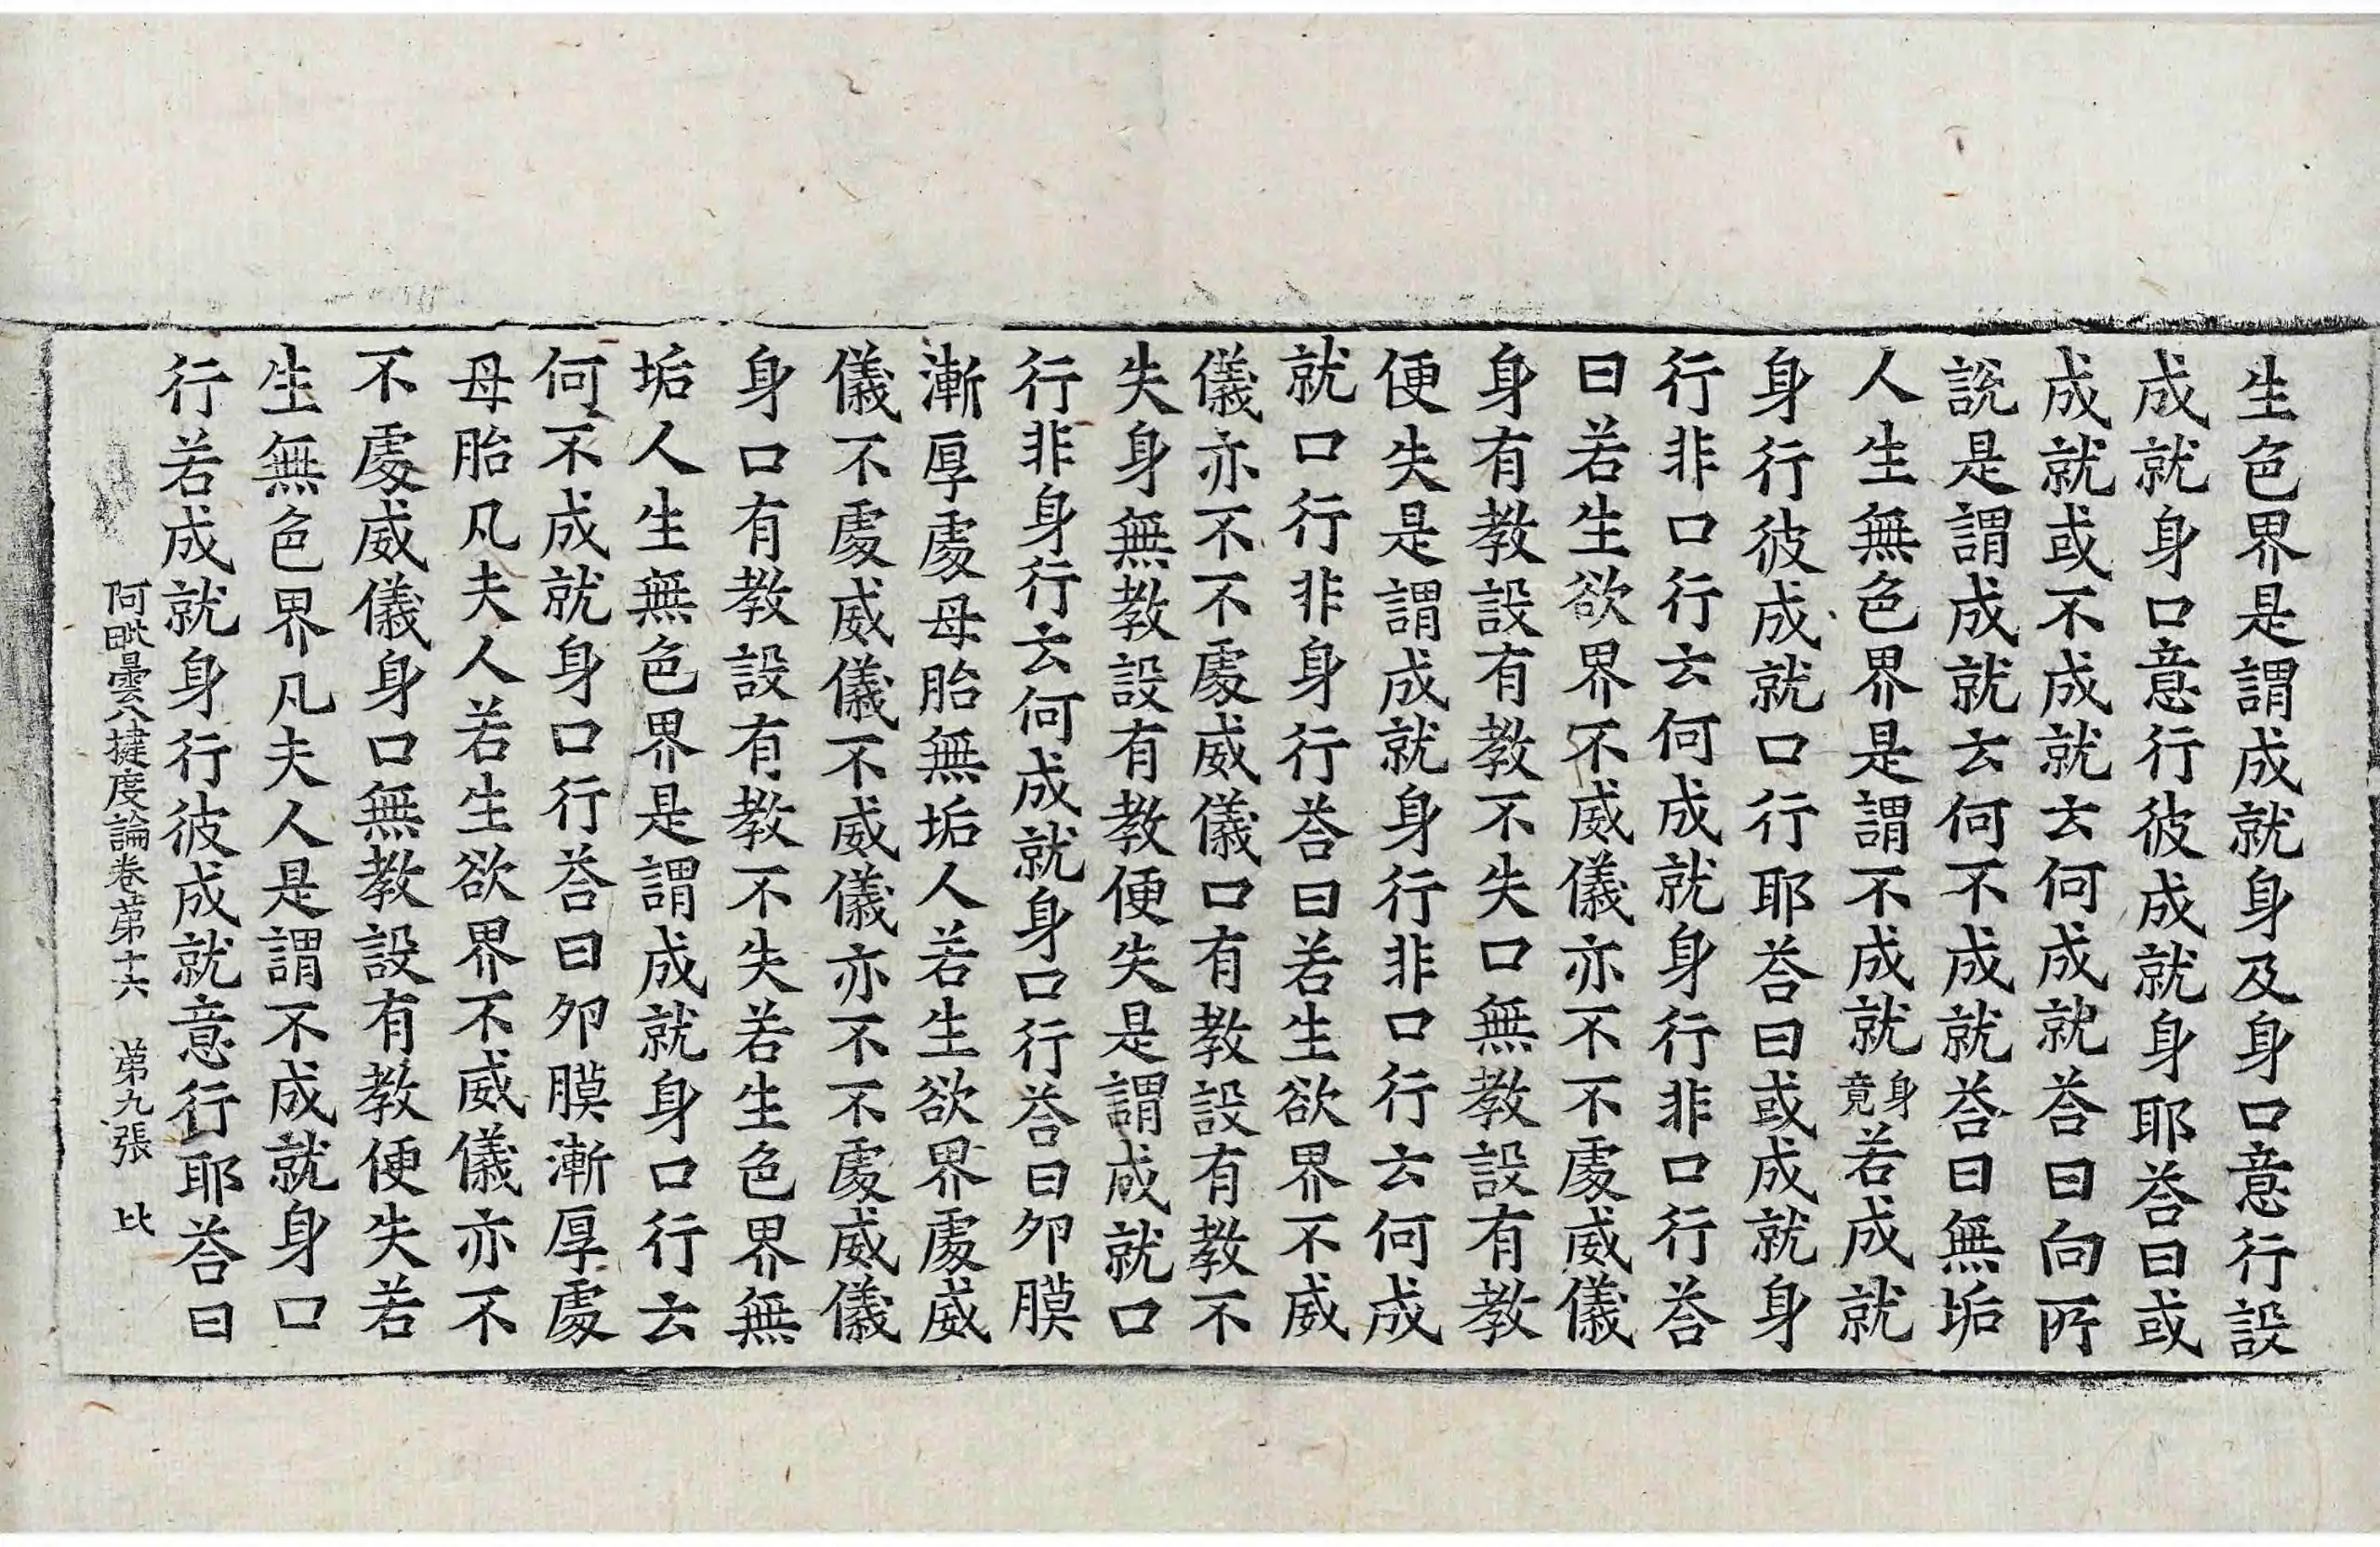 生色界是謂成就身及身口意行設
成就身口意行彼成就身耶荅曰或
成就或不成就云何成就荅曰向所
說是謂成就云何不成就荅曰無垢
人生無色界是謂不成就身竟若成就
身行彼成就口行耶荅曰或成就身
行非口行云何成就身行非口行荅
曰若生欲界不威儀亦不不處威儀
身有教設有教不失口無教設有教
便失是謂成就身行非口行云何成
就口行非身行荅曰若生欲界不威
儀亦不不處威儀口有教設有教不
失身無教設有教便失是謂成就口
行非身行云何成就身口行荅曰夘膜
漸厚處母胎無垢人若生欲界處威
儀不處威儀不威儀亦不不處威儀
身口有教設有教不失若生色界無
垢人生無色界是謂成就身口行云
何不成就身口行荅曰夘膜漸厚處
母胎凡夫人若生欲界不威儀亦不
不處威儀身口無教設有教便失若
生無色界凡夫人是謂不成就身口
行若成就身行彼成就意行耶荅曰
阿毗曇八揵度論卷苐十六 苐九張 比